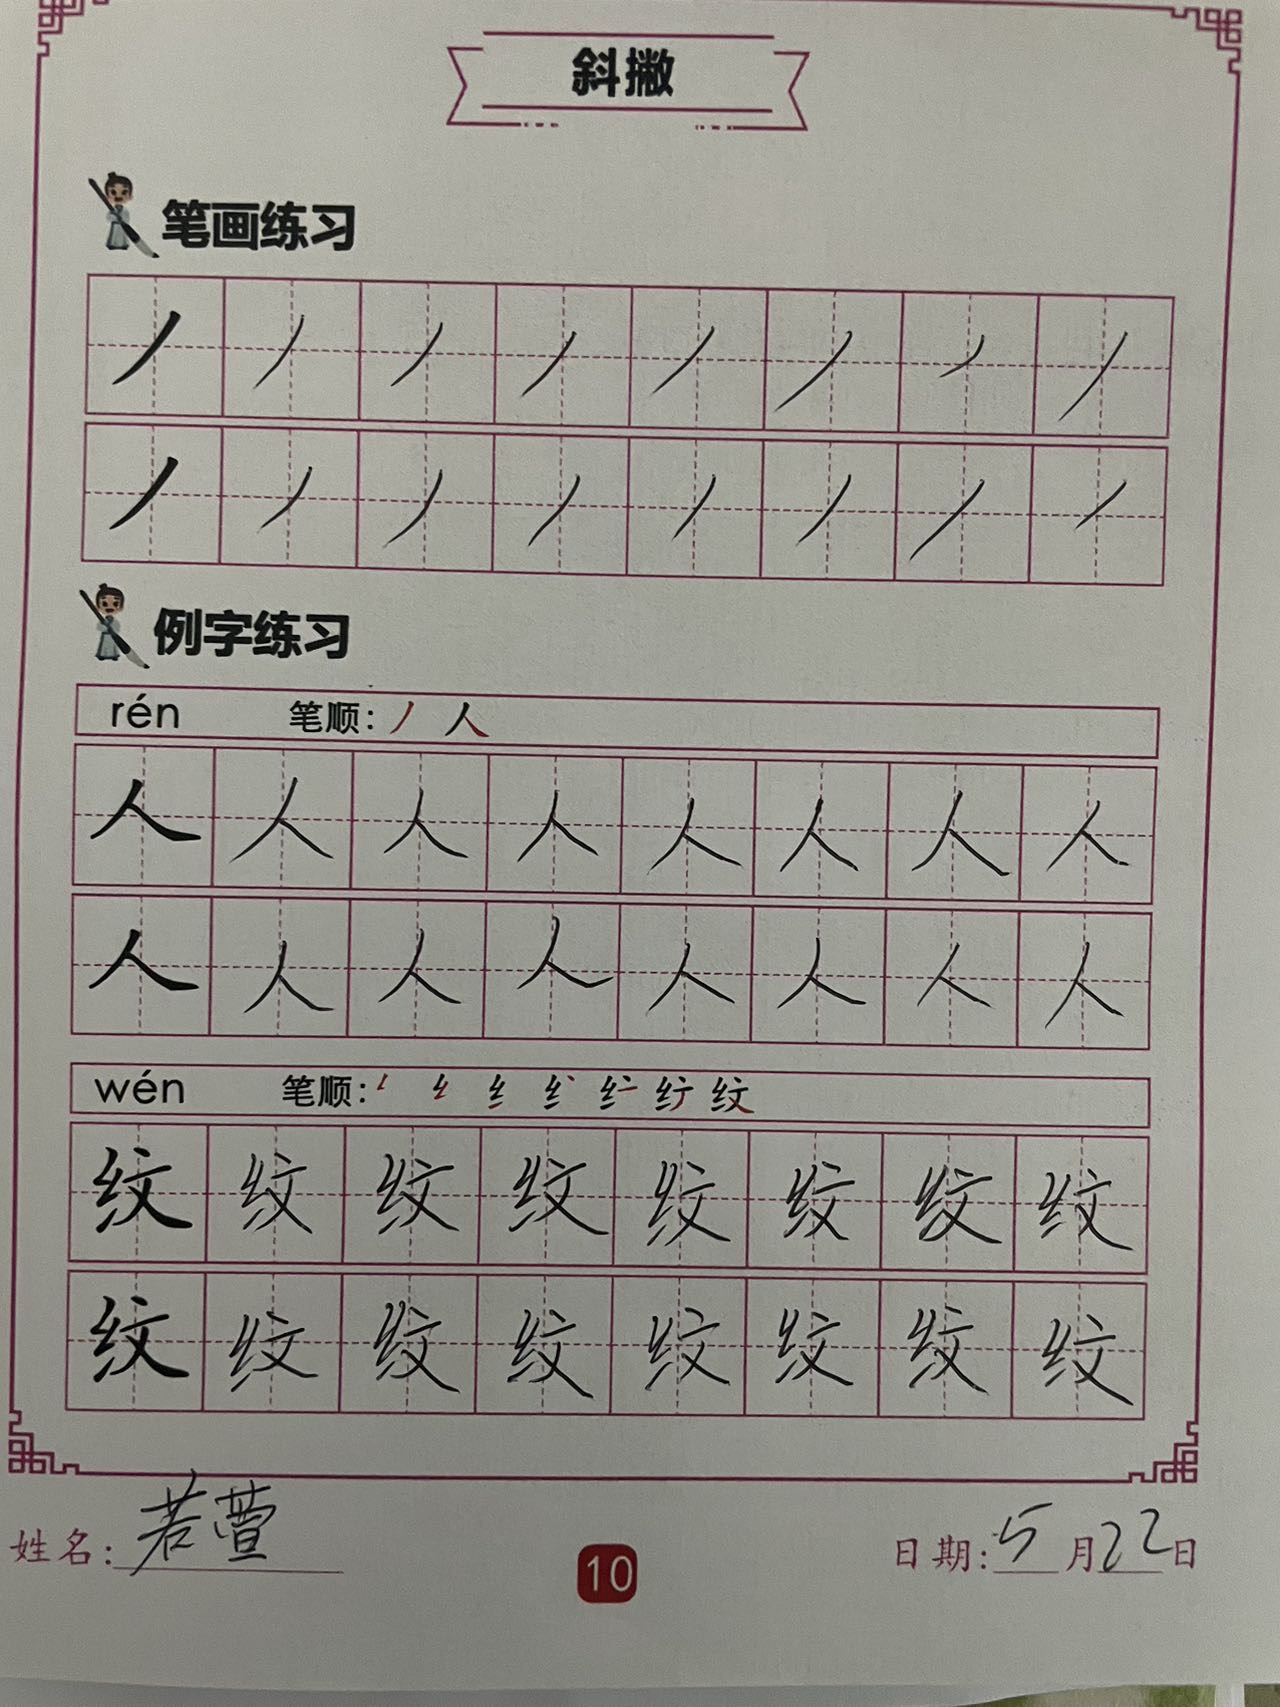 斜撇
笔画练习
丿丿丿丿丿丿丿丿
丿丿丿丿丿丿丿丿
例字练习
rén 笔顺：丿人
人人人人人人人人
人人人人人人人人
wén 笔顺：
纹纹纹纹纹纹纹纹
纹纹纹纹纹纹纹纹
姓名：若萱
10
日期：5月22日